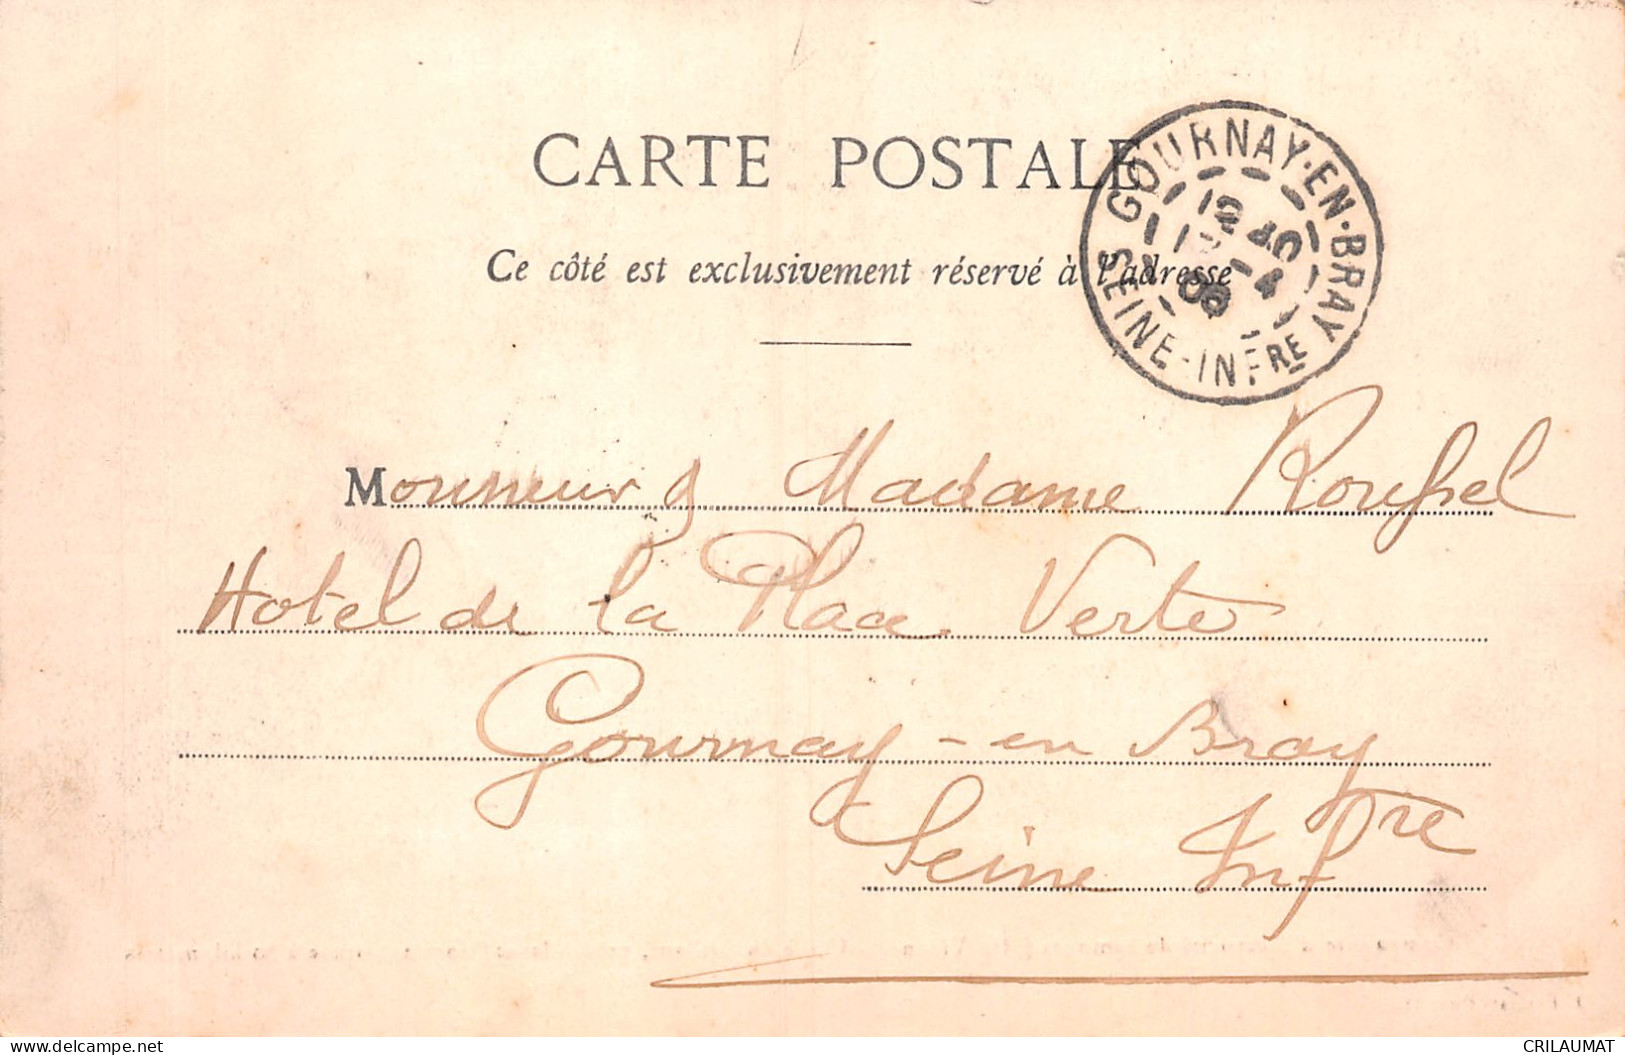 CARTE POSTALE
Ce côté est exclusivement réservé à l'adresse
GOURNAY-EN-BRAY
12 40
-4
06
SEINE-INFRE
Monsieur & Madame Roussel
Hotel de la Place Verte
Gournay-en Bray
Seine Infre
CRILAUMAT